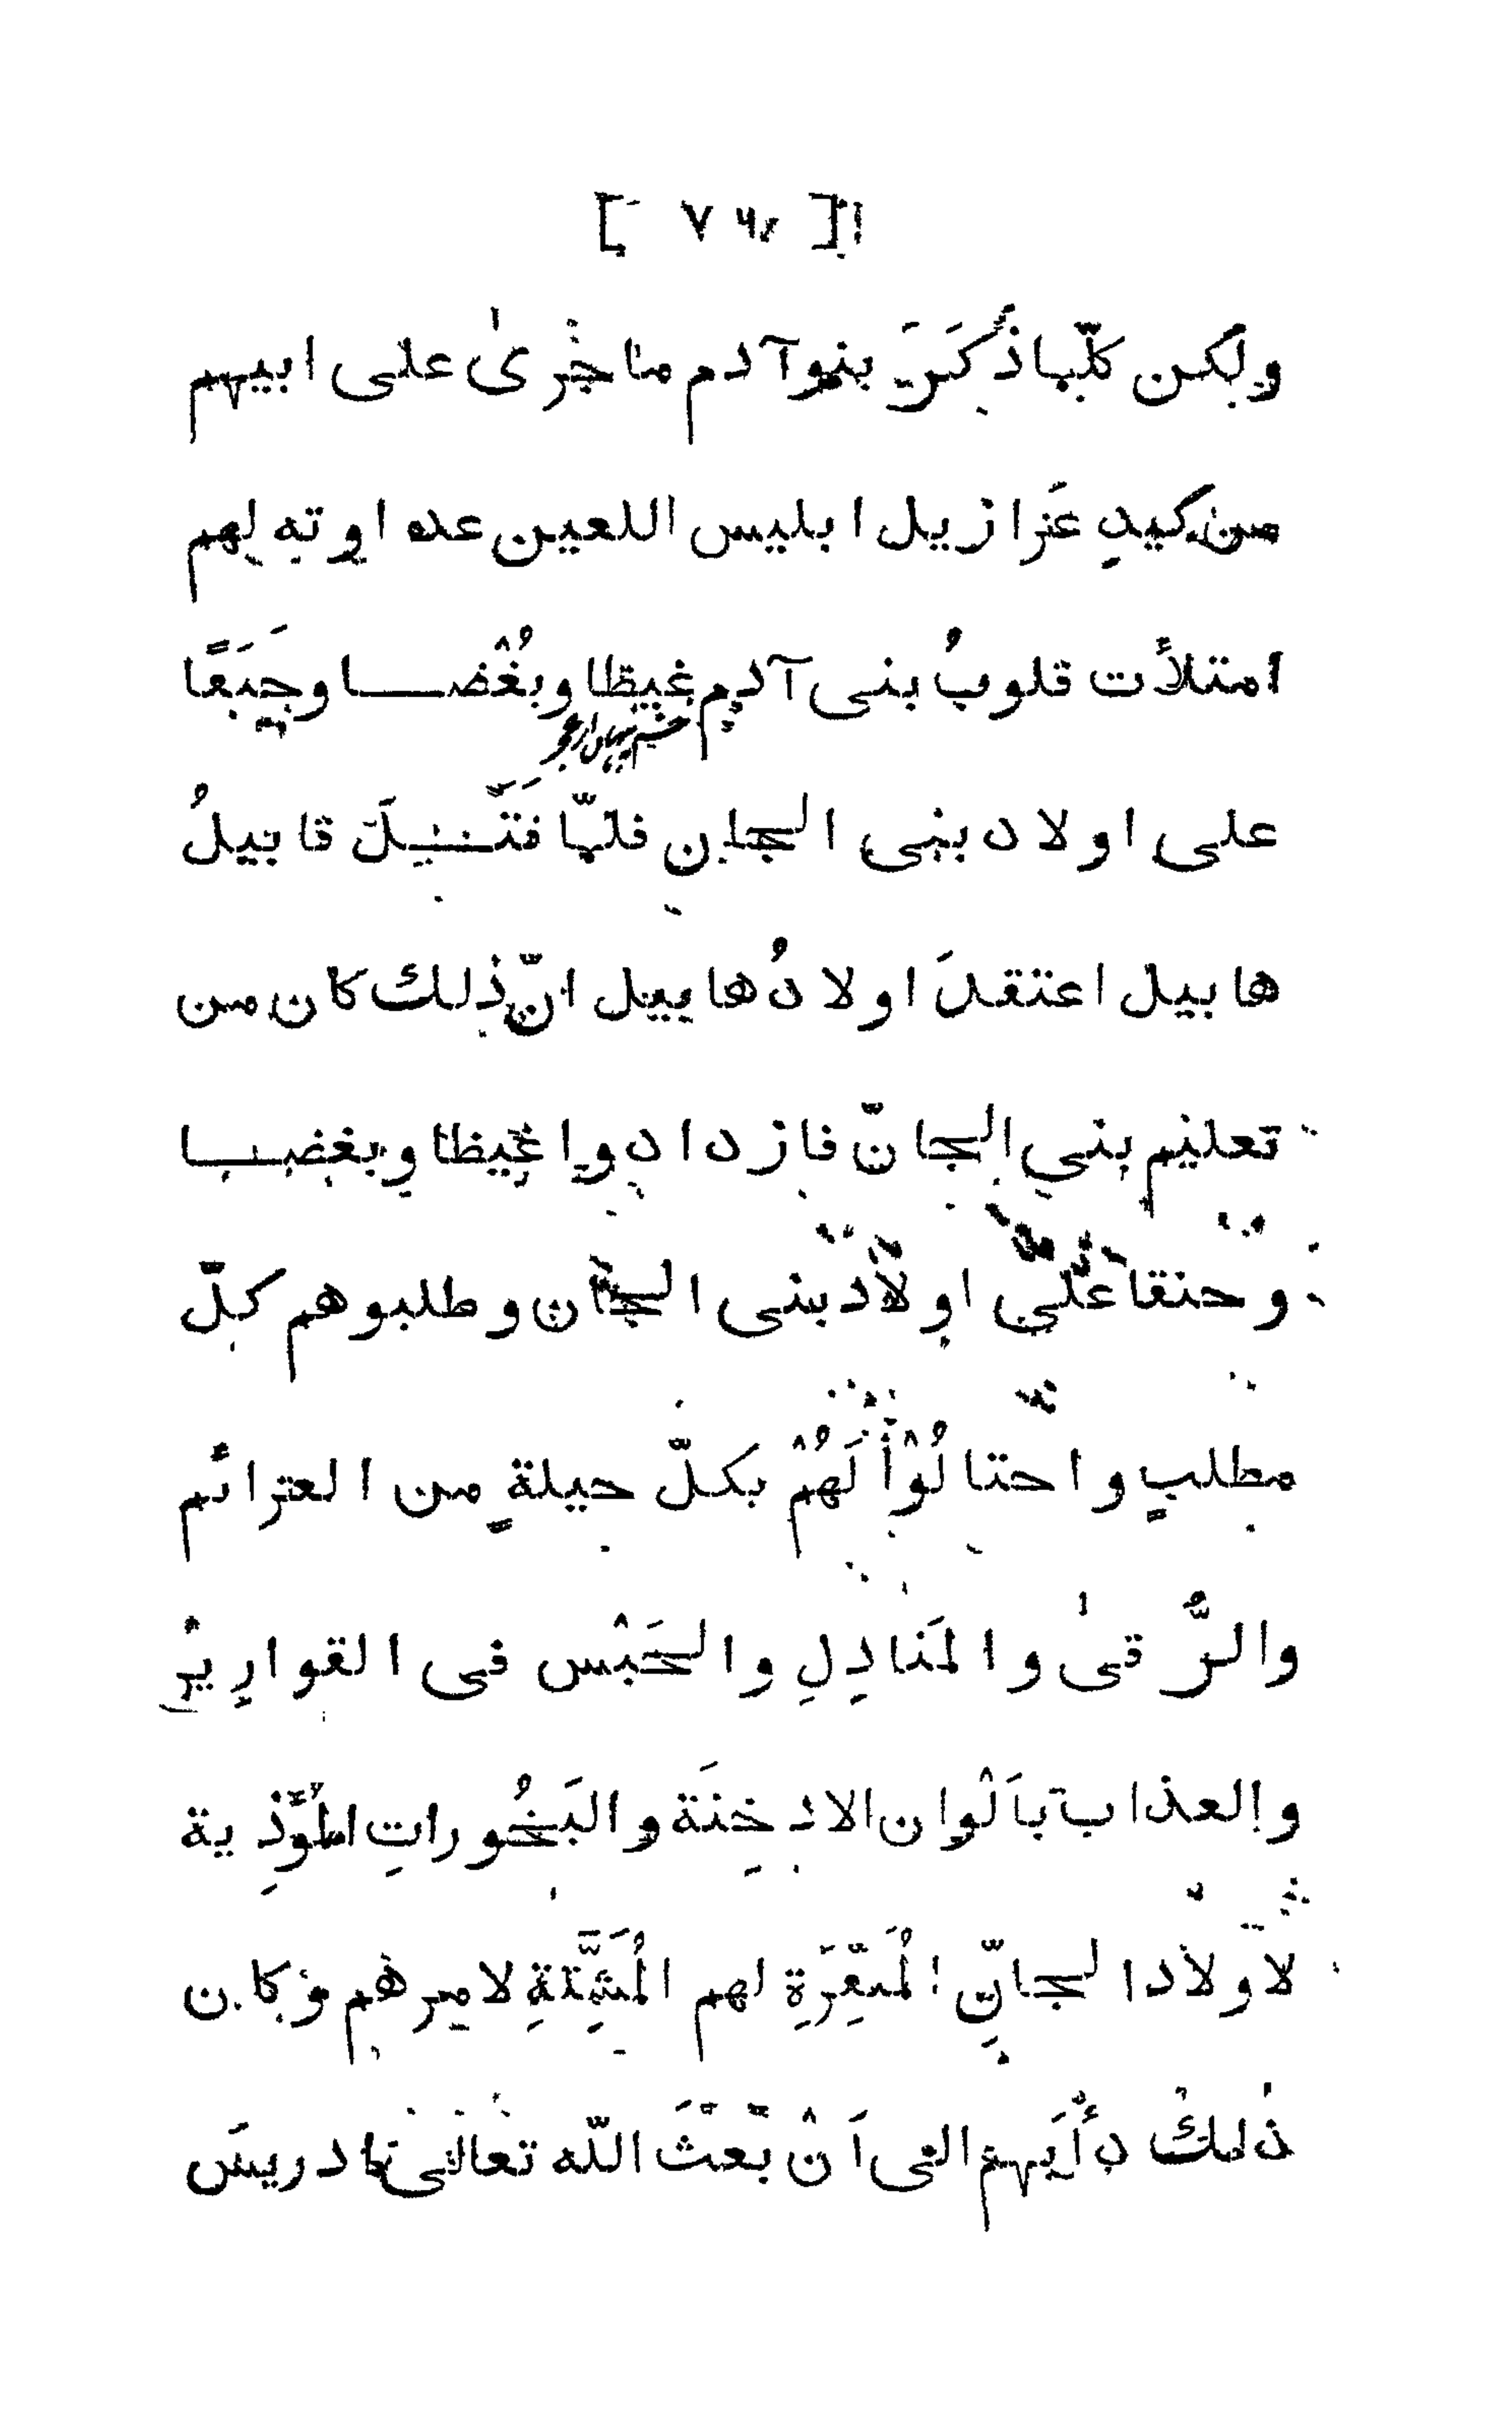 ولكن كلّما ذَكَرَ بنو آدم ما جَرىٰ على ابيهم
من كيدِ عَزازيل ابليس اللعين عداوته لهم
امتلأت قلوبُ بنى آدم غيظا وبُغْضا
على اولاد بنى الجان فلمّا قَتَلَ قابيلُ
هابيل اعتقدَ اولادُ هابيل انّ ذلك كان من
تعليم بنى الجانّ فازدادوا غيظا وبغضا
وحنقا على اولاد بنى الجان وطلبوهم كلّ
مطلبٍ واحتالُوْا لَهُمْ بكلّ حيلةٍ من العزائم
والرُّقىٰ والمَنادِلِ والحَبْس فى القوارِيْرِ
والعذاب بأَلْوان الادخِنَة والبَخُوراتِ المُؤْذِية
لاولاد الجانِّ المُنفِّرَةِ لهم المُشَتِّتَةِ لامرهم وكان
ذٰلكَ دأبَهم الى اَنْ بَعَثَ اللّه تعالى ادريسَ